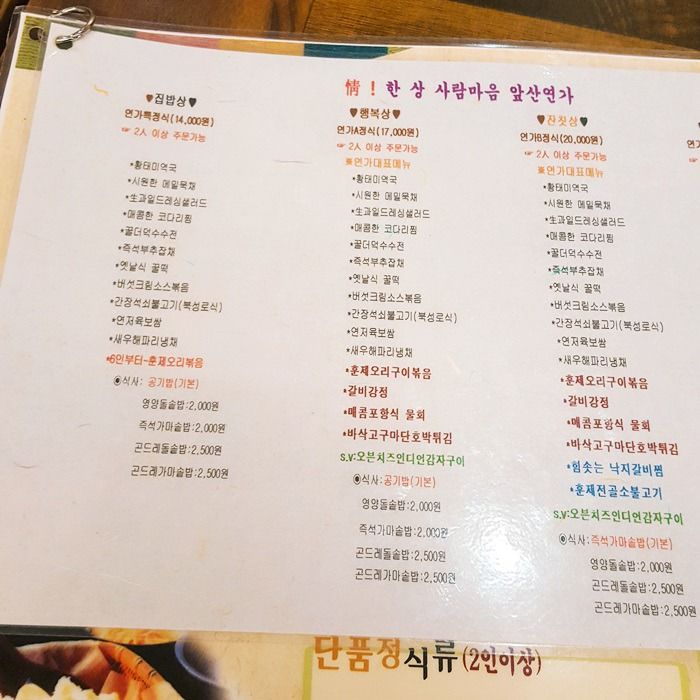 情! 한 상 사람마음 앞산연가
♥집밥상♥
연가특정식(14,000원)
☞ 2人 이상 주문가능
*황태미역국
*시원한 메밀묵채
*生과일드레싱샐러드
*매콤한 코다리찜
*꿀더덕수수전
*즉석부추잡채
*옛날식 꿀떡
*버섯크림소스볶음
*간장석쇠불고기(북성로식)
*연저육보쌈
*새우해파리냉채
*6인부터-훈제오리볶음
◉식사: 공기밥(기본)
영양돌솥밥:2,000원
즉석가마솥밥:2,000원
곤드레돌솥밥:2,500원
곤드레가마솥밥:2,500원
♥행복상♥
연가A정식(17,000원)
☞ 2人 이상 주문가능
※연가대표메뉴
*황태미역국
*시원한 메밀묵채
*生과일드레싱샐러드
*매콤한 코다리찜
*꿀더덕수수전
*즉석부추잡채
*옛날식 꿀떡
*버섯크림소스볶음
*간장석쇠불고기(북성로식)
*연저육보쌈
*새우해파리냉채
*훈제오리구이볶음
*갈비강정
*매콤포항식 물회
*바삭고구마단호박튀김
s.v:오븐치즈인디언감자구이
◉식사: 공기밥(기본)
영양돌솥밥:2,000원
즉석가마솥밥:2,000원
곤드레돌솥밥:2,500원
곤드레가마솥밥:2,500원
♥잔칫상♥
연가B정식(20,000원)
☞ 2人 이상 주문가능
※연가대표메뉴
*황태미역국
*시원한 메밀묵채
*生과일드레싱샐러드
*매콤한 코다리찜
*꿀더덕수수전
*즉석부추잡채
*옛날식 꿀떡
*버섯크림소스볶음
*간장석쇠불고기(북성로식)
*연저육보쌈
*새우해파리냉채
*훈제오리구이볶음
*갈비강정
*매콤포항식 물회
*바삭고구마단호박튀김
*힘솟는 낙지갈비찜
*훈제전골소불고기
s.v:오븐치즈인디언감자구이
◉식사: 즉석가마솥밥(기본)
영양돌솥밥:2,000원
곤드레돌솥밥:2,500원
곤드레가마솥밥:2,500원
단품정식류(2인이상)